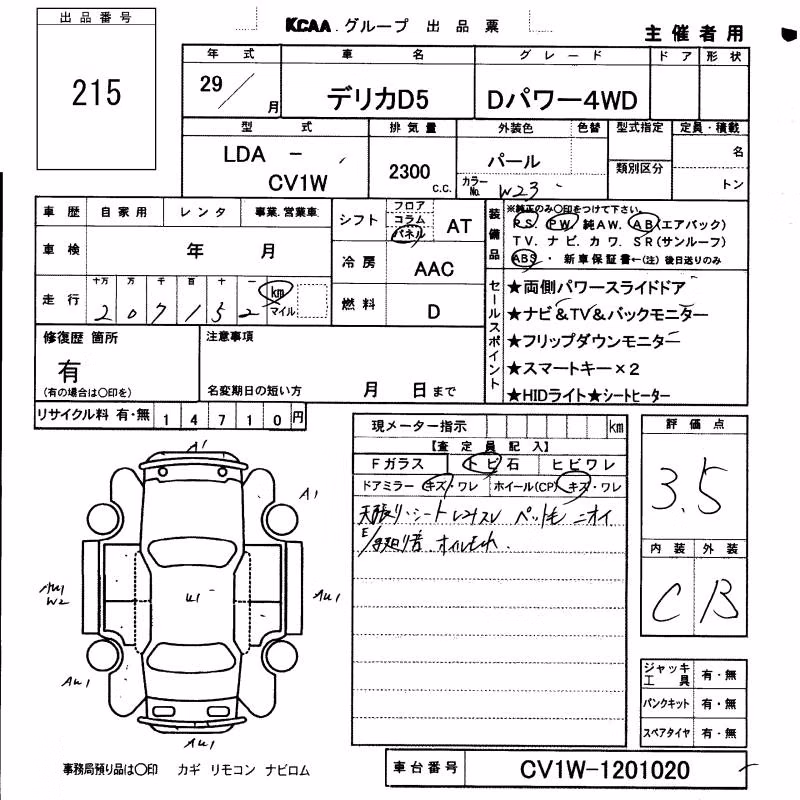 出品番号
215
KCAA グループ 出品票
主催者用
年式 車名 グレード ドア 形状
29／月 デリカD5 Dパワー4WD
型式 排気量 外装色 色替 型式指定 定員・積載
LDA － CV1W 2300c.c. パール 類別区分 名
カラーNo. W23 トン
車歴 自家用 レンタ 事業.営業車 シフト フロア コラム パネル AT
車検 年 月 冷房 AAC
走行 十万 万 千 百 十 一 km マイル
207152
燃料 D
装備品
※純正のみ○印をつけて下さい。
PS. PW. 純AW. AB(エアバック)
TV. ナビ. カワ. SR(サンルーフ)
ABS・新車保証書←(注) 後日送りのみ
セールスポイント
★両側パワースライドドア
★ナビ&TV&バックモニター
★フリップダウンモニター
★スマートキー×2
★HIDライト★シートヒーター
修復歴 箇所
有
(有の場合は○印を)
注意事項
名変期日の短い方 月 日まで
リサイクル料 有・無 14710円
現メーター指示 km
【査定員記入】
Fガラス トビ石 ヒビワレ
ドアミラー キズ・ワレ ホイール(CP) キズ・ワレ
天張り・シート シミスレ ペット毛 ニオイ
オイルもれ.
評価点
3.5
内装 外装
C B
A1
A1
AU1
W2
U1
AU1
AU1
AU1
ジャッキ工具 有・無
パンクキット 有・無
スペアタイヤ 有・無
事務局預り品は○印 カギ リモコン ナビロム
車台番号 CV1W-1201020